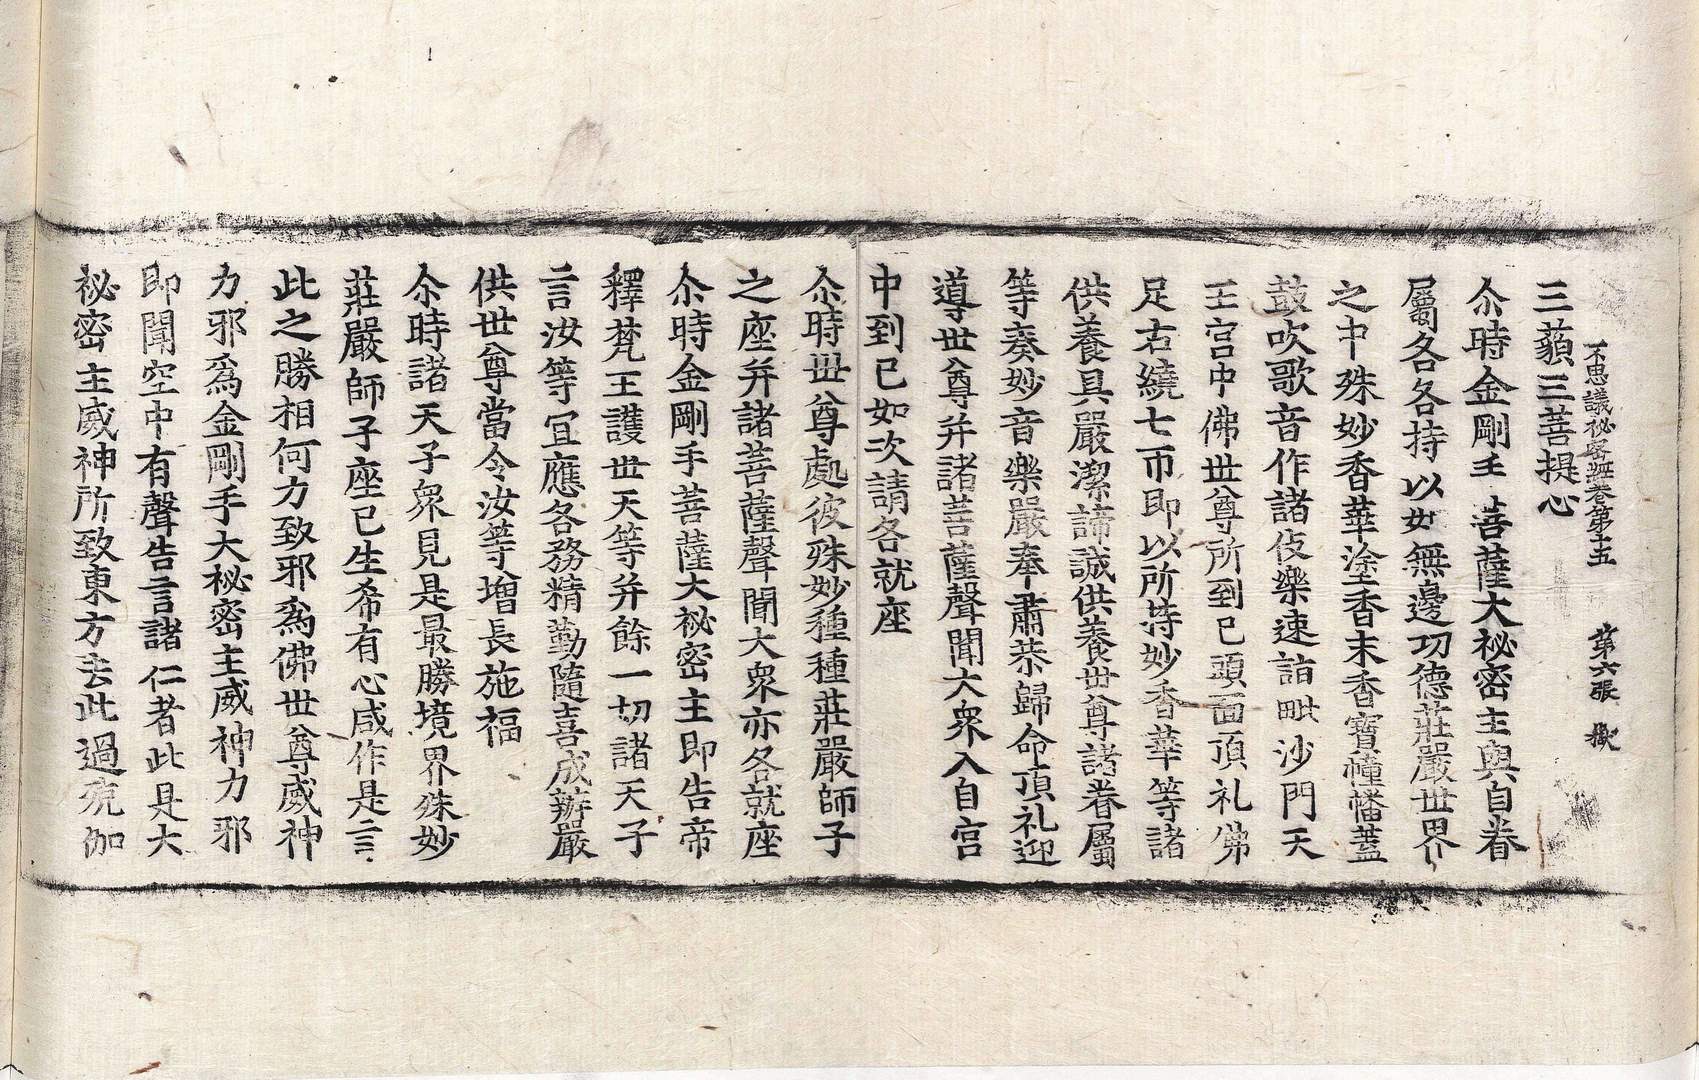 不思議祕密經卷第十五　第六張　㰸
三藐三菩提心
尒時金剛手菩薩大祕密主與自眷
屬各各持以如無邊功德莊嚴世界
之中殊妙香華塗香末香寶幢幡蓋
鼓吹歌音作諸伎樂速詣毗沙門天
王宮中佛世尊所到已頭面頂礼佛
足右繞七帀即以所持妙香華等諸
供養具嚴潔諦誠供養世尊諸眷屬
等奏妙音樂嚴奉肅恭歸命頂礼迎
導世尊并諸菩薩聲聞大衆入自宮
中到已如次請各就座
尒時世尊處彼殊妙種種莊嚴師子
之座并諸菩薩聲聞大衆亦各就座
尒時金剛手菩薩大祕密主即告帝
釋梵王護世天等并餘一切諸天子
言汝等宜應各務精勤隨喜成辦嚴
供世尊當令汝等增長施福
尒時諸天子衆見是最勝境界殊妙
莊嚴師子座已生希有心咸作是言
此之勝相何方致邪爲佛世尊威神
力邪爲金剛手大祕密主威神力邪
即聞空中有聲告言諸仁者此是大
祕密主威神所致東方去此過殑伽